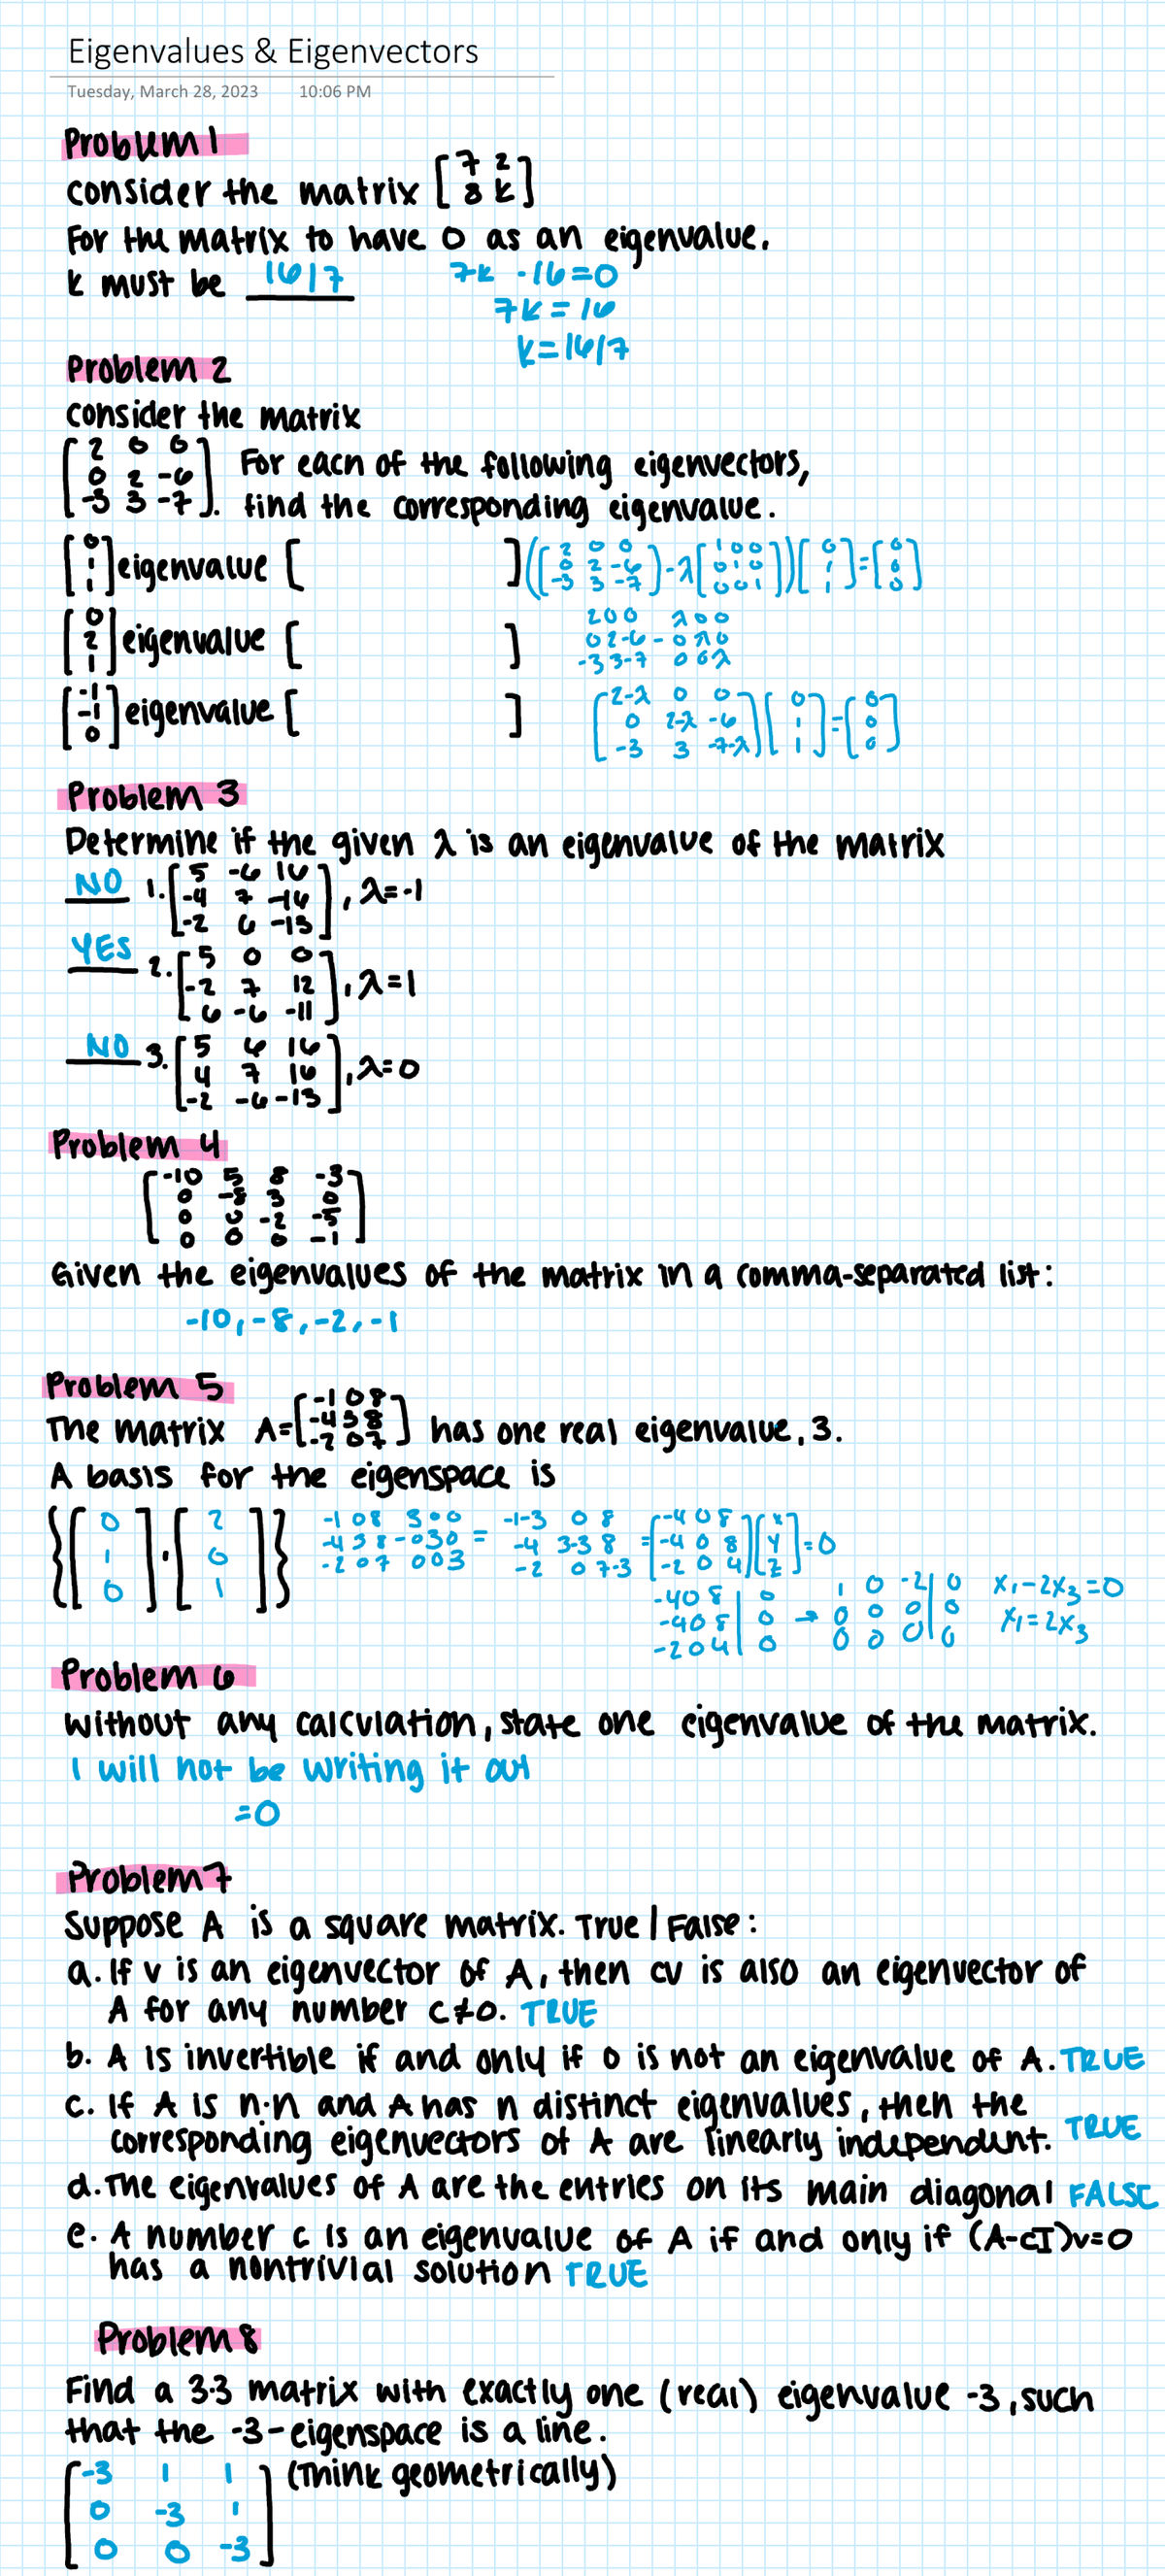 Eigenvalues & Eigenvectors
Tuesday, March 28, 2023 10:06 PM
Problem 1
consider the matrix [7 2
8 k]
For the matrix to have 0 as an eigenvalue,
k must be 16/7 7k - 16 = 0
7k = 16
k = 16/7
Problem 2
consider the matrix
[2 0 0
0 2 -6
-3 3 -7]. For each of the following eigenvectors,
find the corresponding eigenvalue.
[0
1
1] eigenvalue [ ] ([2 0 0
0 2 -6
-3 3 -7] - λ[1 0 0
0 1 0
0 0 1])[0
1
1] = [0
0
0]
[0
2
1] eigenvalue [ ] 2 0 0 λ 0 0
0 2 -6 - 0 λ 0
-3 3 -7 0 0 λ
[-1
-1
0] eigenvalue [ ] [2-λ 0 0
0 2-λ -6
-3 3 -7-λ][0
1
1] = [0
0
0]
Problem 3
Determine if the given λ is an eigenvalue of the matrix
NO 1. [5 -6 16
-4 7 -16
-2 6 -13], λ=-1
YES 2. [5 0 0
-2 7 12
6 -6 -11], λ=1
NO 3. [5 6 16
4 7 16
-2 -6 -13], λ=0
Problem 4
[-10 5 8 -3
0 -8 3 0
0 0 -2 -5
0 0 0 -1]
Given the eigenvalues of the matrix in a comma-separated list:
-10, -8, -2, -1
Problem 5
The matrix A=[-1 0 8
-4 3 8
-2 0 7] has one real eigenvalue, 3.
A basis for the eigenspace is
{[0
1
0] . [2
0
1]} -1 0 8 3 0 0 -1-3 0 8 [-4 0 8 [x
-4 3 8 - 0 3 0 = -4 3-3 8 = -4 0 8 y = 0
-2 0 7 0 0 3 -2 0 7-3 -2 0 4] z]
-4 0 8 | 0 1 0 -2 | 0 x₁-2x₃=0
-4 0 8 | 0 → 0 0 0 | 0 x₁=2x₃
-2 0 4 | 0 0 0 0 | 0
Problem 6
without any calculation, state one eigenvalue of the matrix.
I will not be writing it out
=0
Problem 7
Suppose A is a square matrix. True / False:
a. If v is an eigenvector of A, then cv is also an eigenvector of
A for any number c≠0. TRUE
b. A is invertible if and only if 0 is not an eigenvalue of A. TRUE
c. If A is n·n and A has n distinct eigenvalues, then the
corresponding eigenvectors of A are linearly independent. TRUE
d. The eigenvalues of A are the entries on its main diagonal FALSE
e. A number c is an eigenvalue of A if and only if (A-cI)v=0
has a nontrivial solution TRUE
Problem 8
Find a 3·3 matrix with exactly one (real) eigenvalue -3, such
that the -3-eigenspace is a line.
[-3 1 1 (Think geometrically)
0 -3 1
0 0 -3]